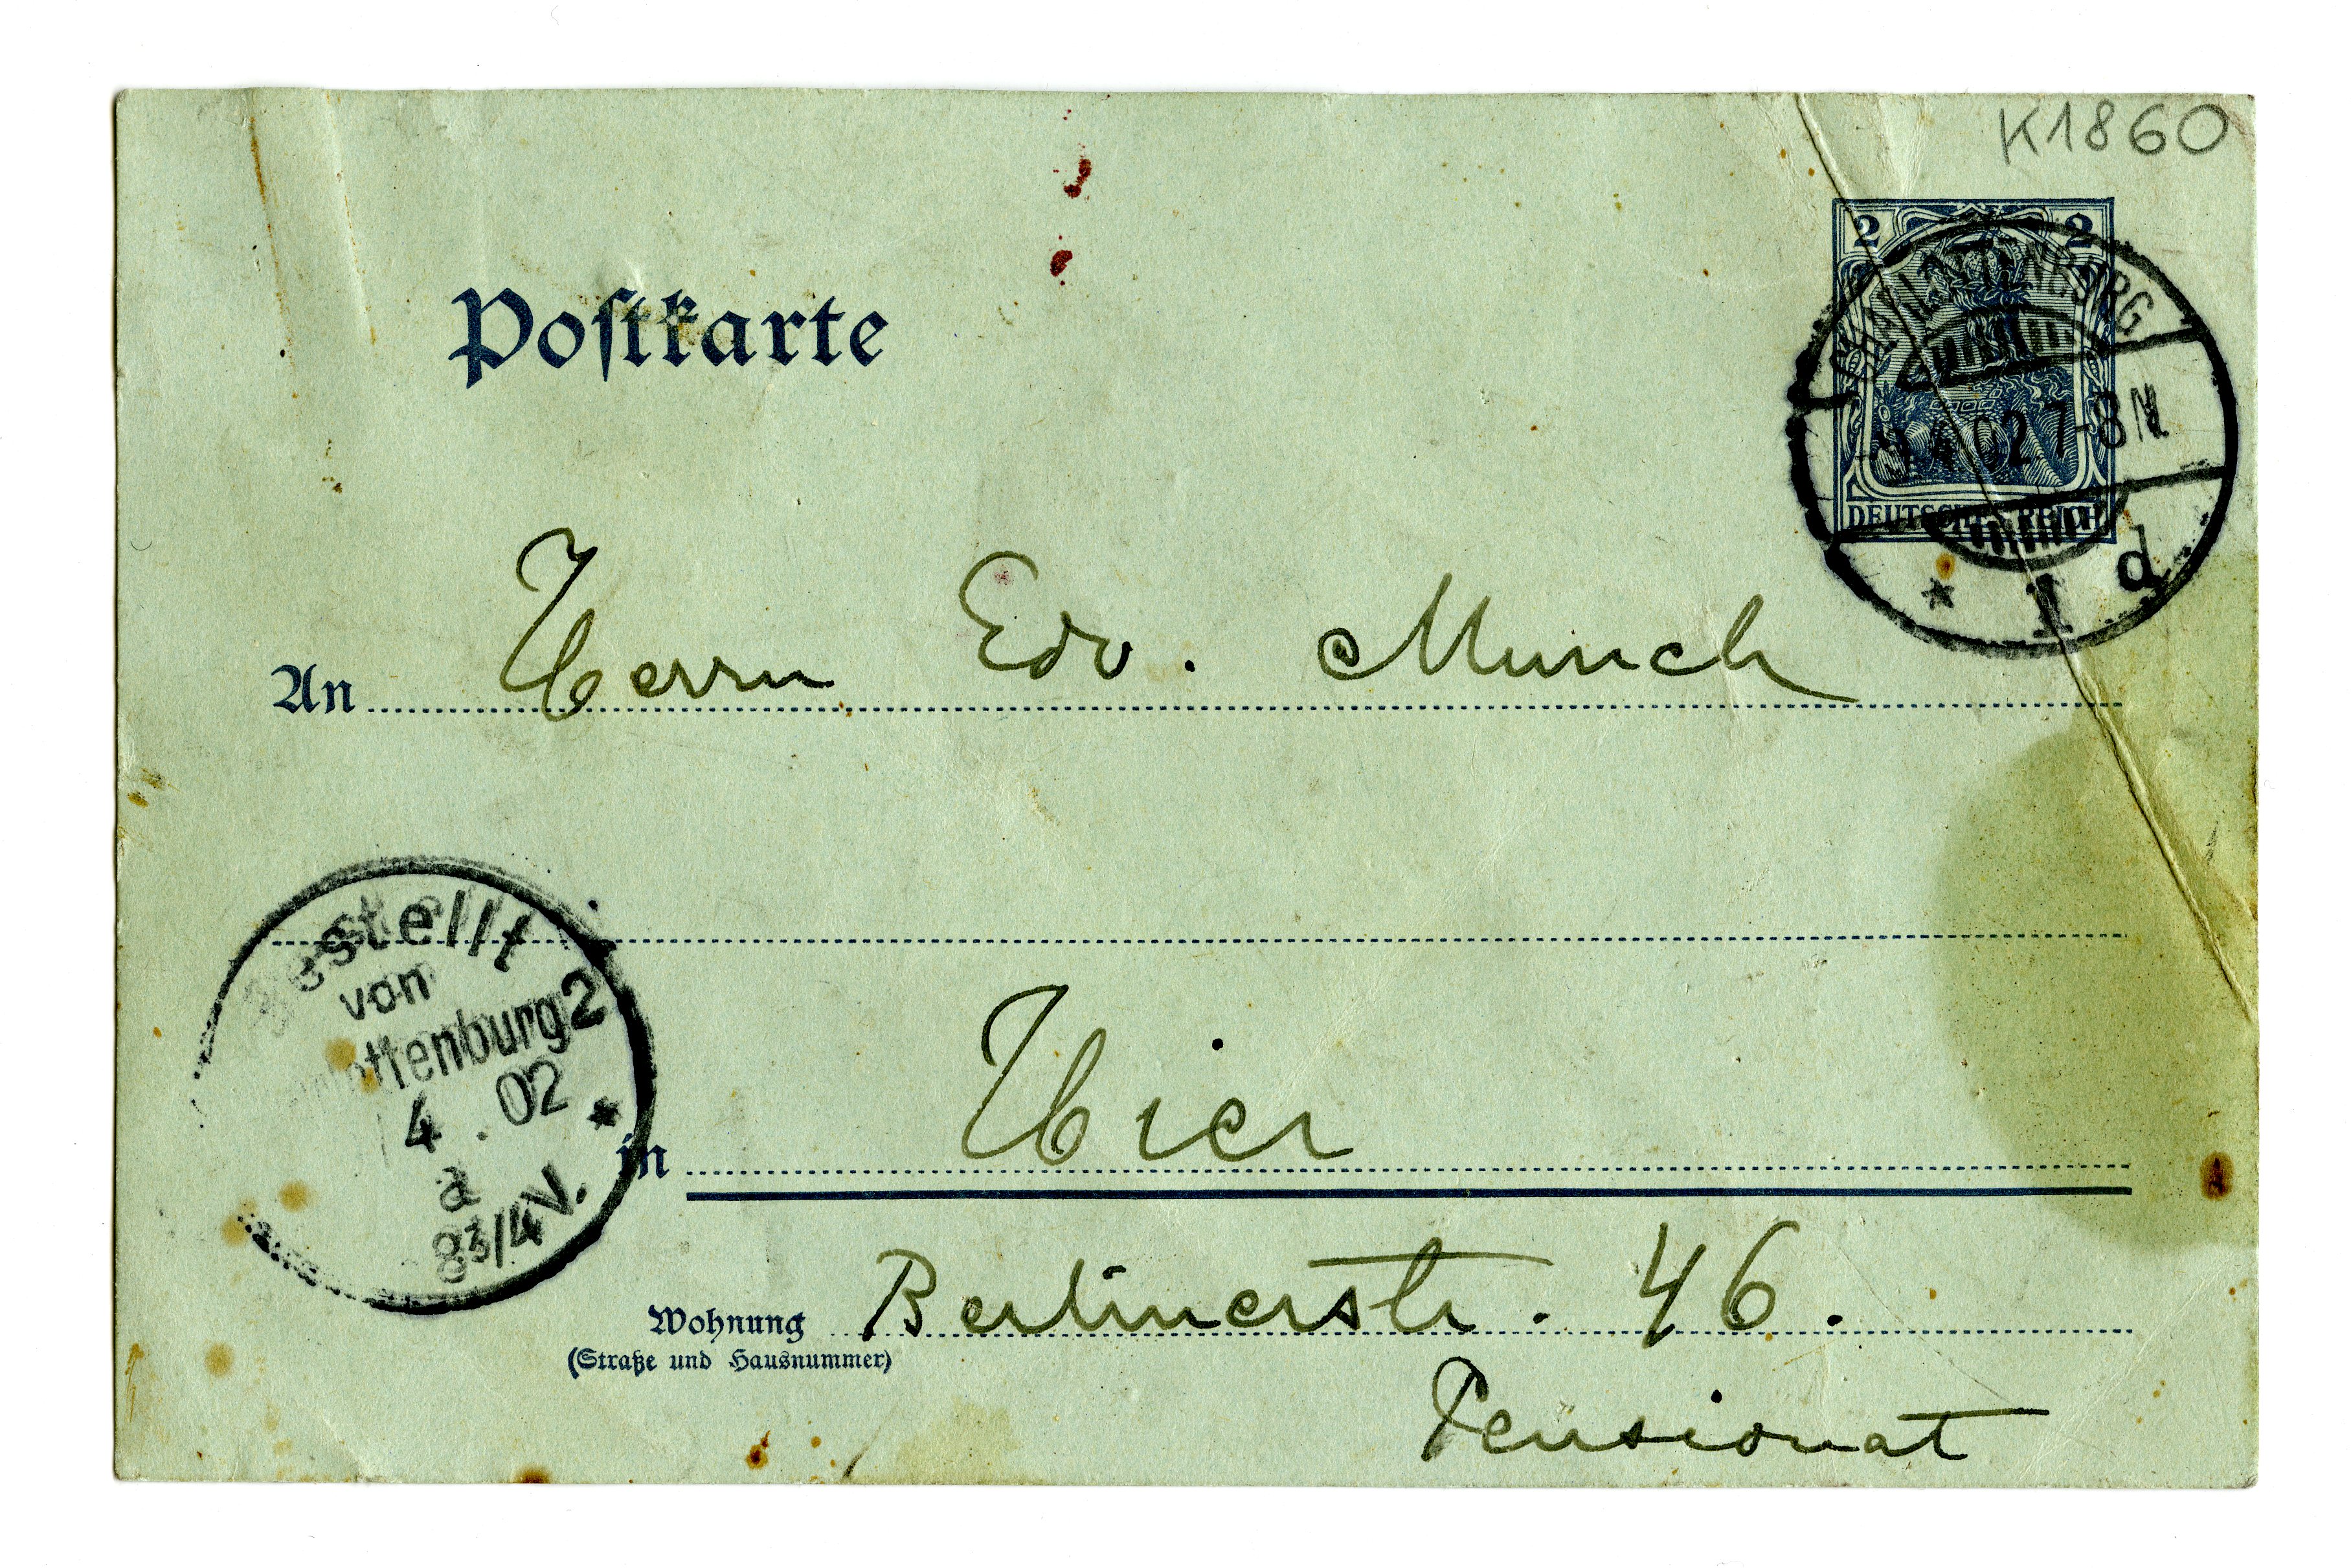 K1860
2 2
CHARLOTTENBURG
4 02 7-8N
DEUTSCHES REICH
* 1 d
Postkarte
An Herrn Edv. Munch
Bestellt
von
ttenburg 2
4 . 02 *
a
8 3/4 V.
in Hier
Wohnung Berlinerstr. 46.
(Straße und Hausnummer)
Pensionat